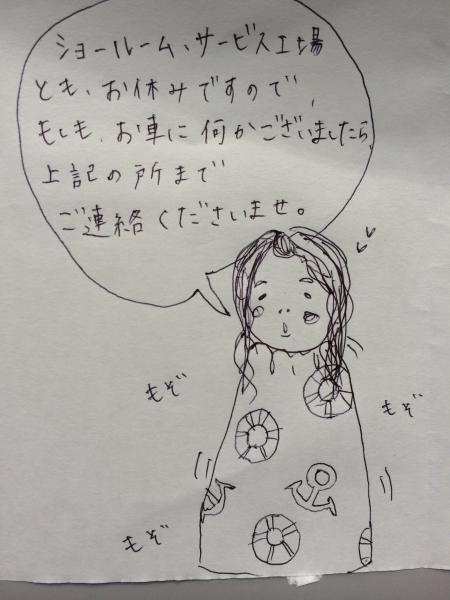 ショールーム、サービス工場
とも、お休みですので、
もしも、お車に何かございましたら、
上記の所まで
ご連絡くださいませ。
もぞ
もぞ
もぞ